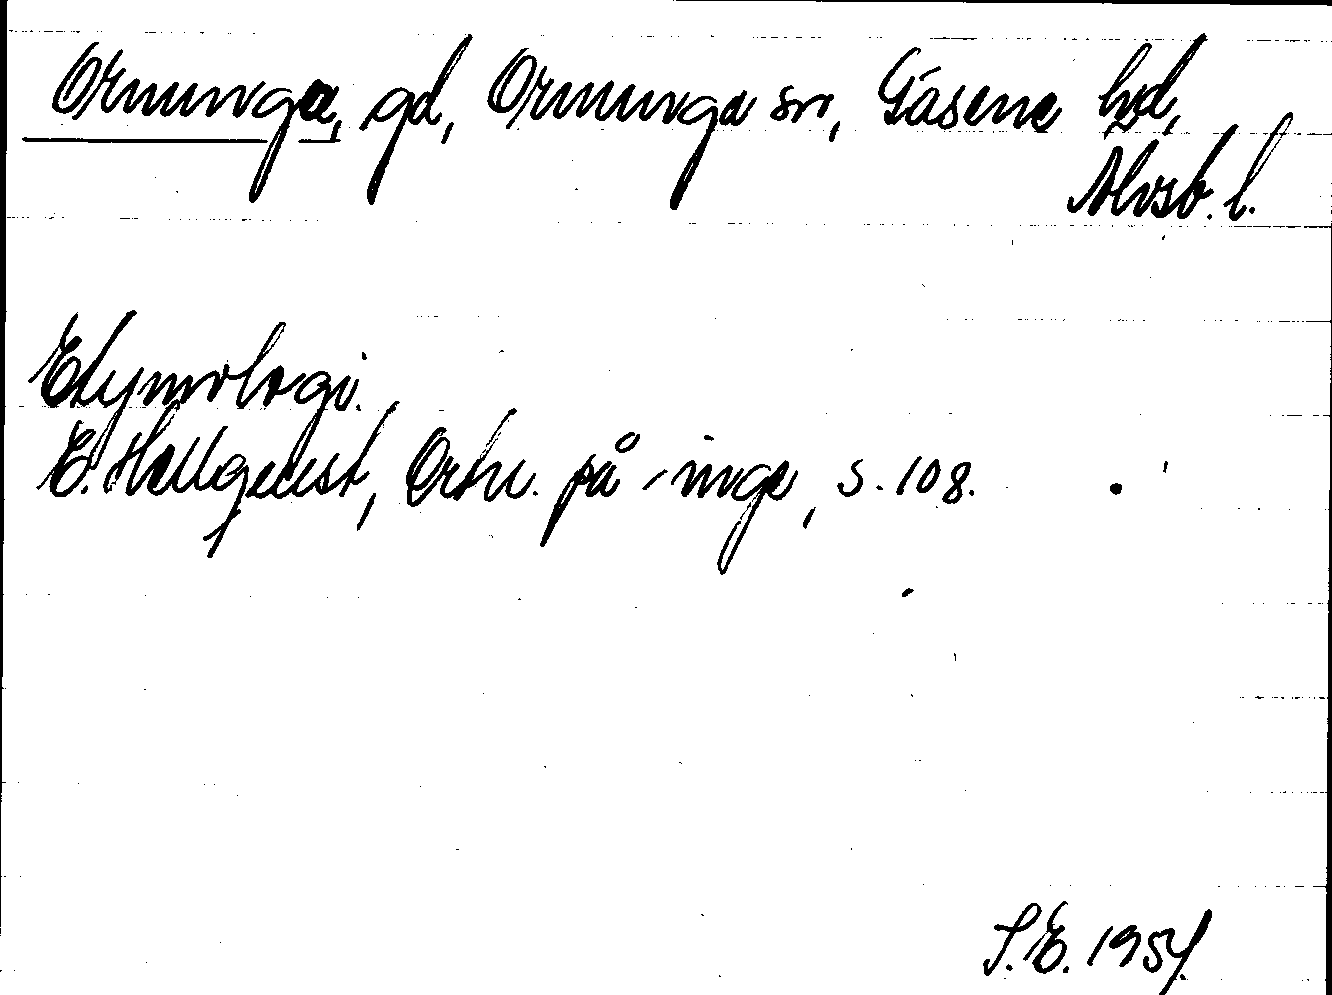 Ornunga, gd, Ornunga sn, Gäsene hd,
Älvsb. l.
Etymologi.
E. Hellquist, Ortn. på -inge, s. 108.
S.E. 1951.